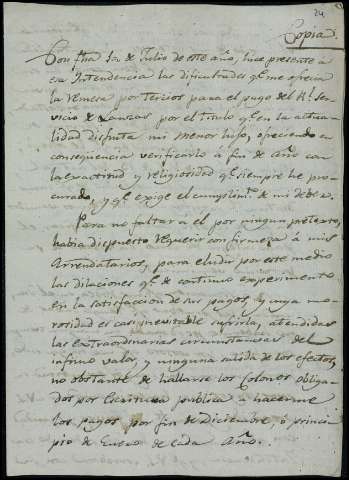 24
Copia.
Con fha 1º de Julio de este año, hice presente á
esa Intendencia las dificultades qe. me ofrecia
la remesa por tercios para el pago del Rl. Ser-
vicio de Lanzas por el titulo qe. en la actua-
lidad disfruta mi menor hijo, ofreciendo en
consequencia verificarlo á fin de año con
la exactitud y religiosidad qe. siempre he pro-
curado, y qe. exige el cumplimto. de mi deber.
Para no faltar á el por ningun pretexto,
habia dispuesto requerir con firmeza á mis
Arrendatarios, para eludir por este medio
las dilaciones qe. de continuo experimento
en la satisfaccion de sus pagos, y cuya mo-
rosidad es casi inevitable sufrirla, atendidas
las extraordinarias circunstancias del
infimo valor, y ninguna salida de los efectos,
no obstante de hallarse los Colonos obliga-
dos por Escritura publica á hacerme
los pagos por fin de Diciembre, ó princi-
pio de Enero de cada Año.